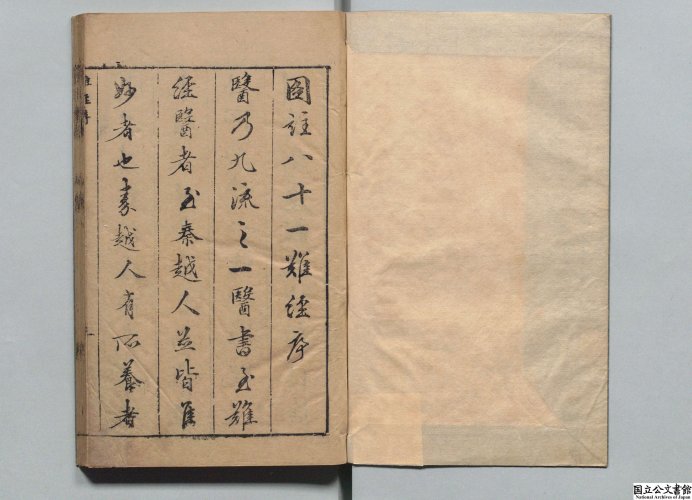 圖註八十一難經序
醫乃九流之一醫書至難
經醫者至秦越人並皆
妙者也秦越人有所養者
国立公文書館
National Archives of Japan